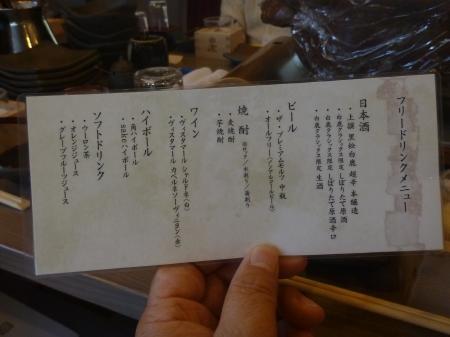 フリードリンクメニュー
日本酒
・上撰 黒松白鹿 超辛 本醸造
・白鹿クラシックス限定 しぼりたて原酒
・白鹿クラシックス限定 しぼりたて原酒 辛口
・白鹿クラシックス限定 生酒
ビール
・ザ・プレミアムモルツ 中瓶
・オールフリー(ノンアルコールビール)
焼酎
・麦焼酎
・芋焼酎
ワイン
・ヴィスタマール シャルドネ(白)
・ヴィスタマール カベルネソーヴィニヨン(赤)
ハイボール
・角ハイボール
・sakeハイボール
ソフトドリンク
・ウーロン茶
・オレンジジュース
・グレープフルーツジュース